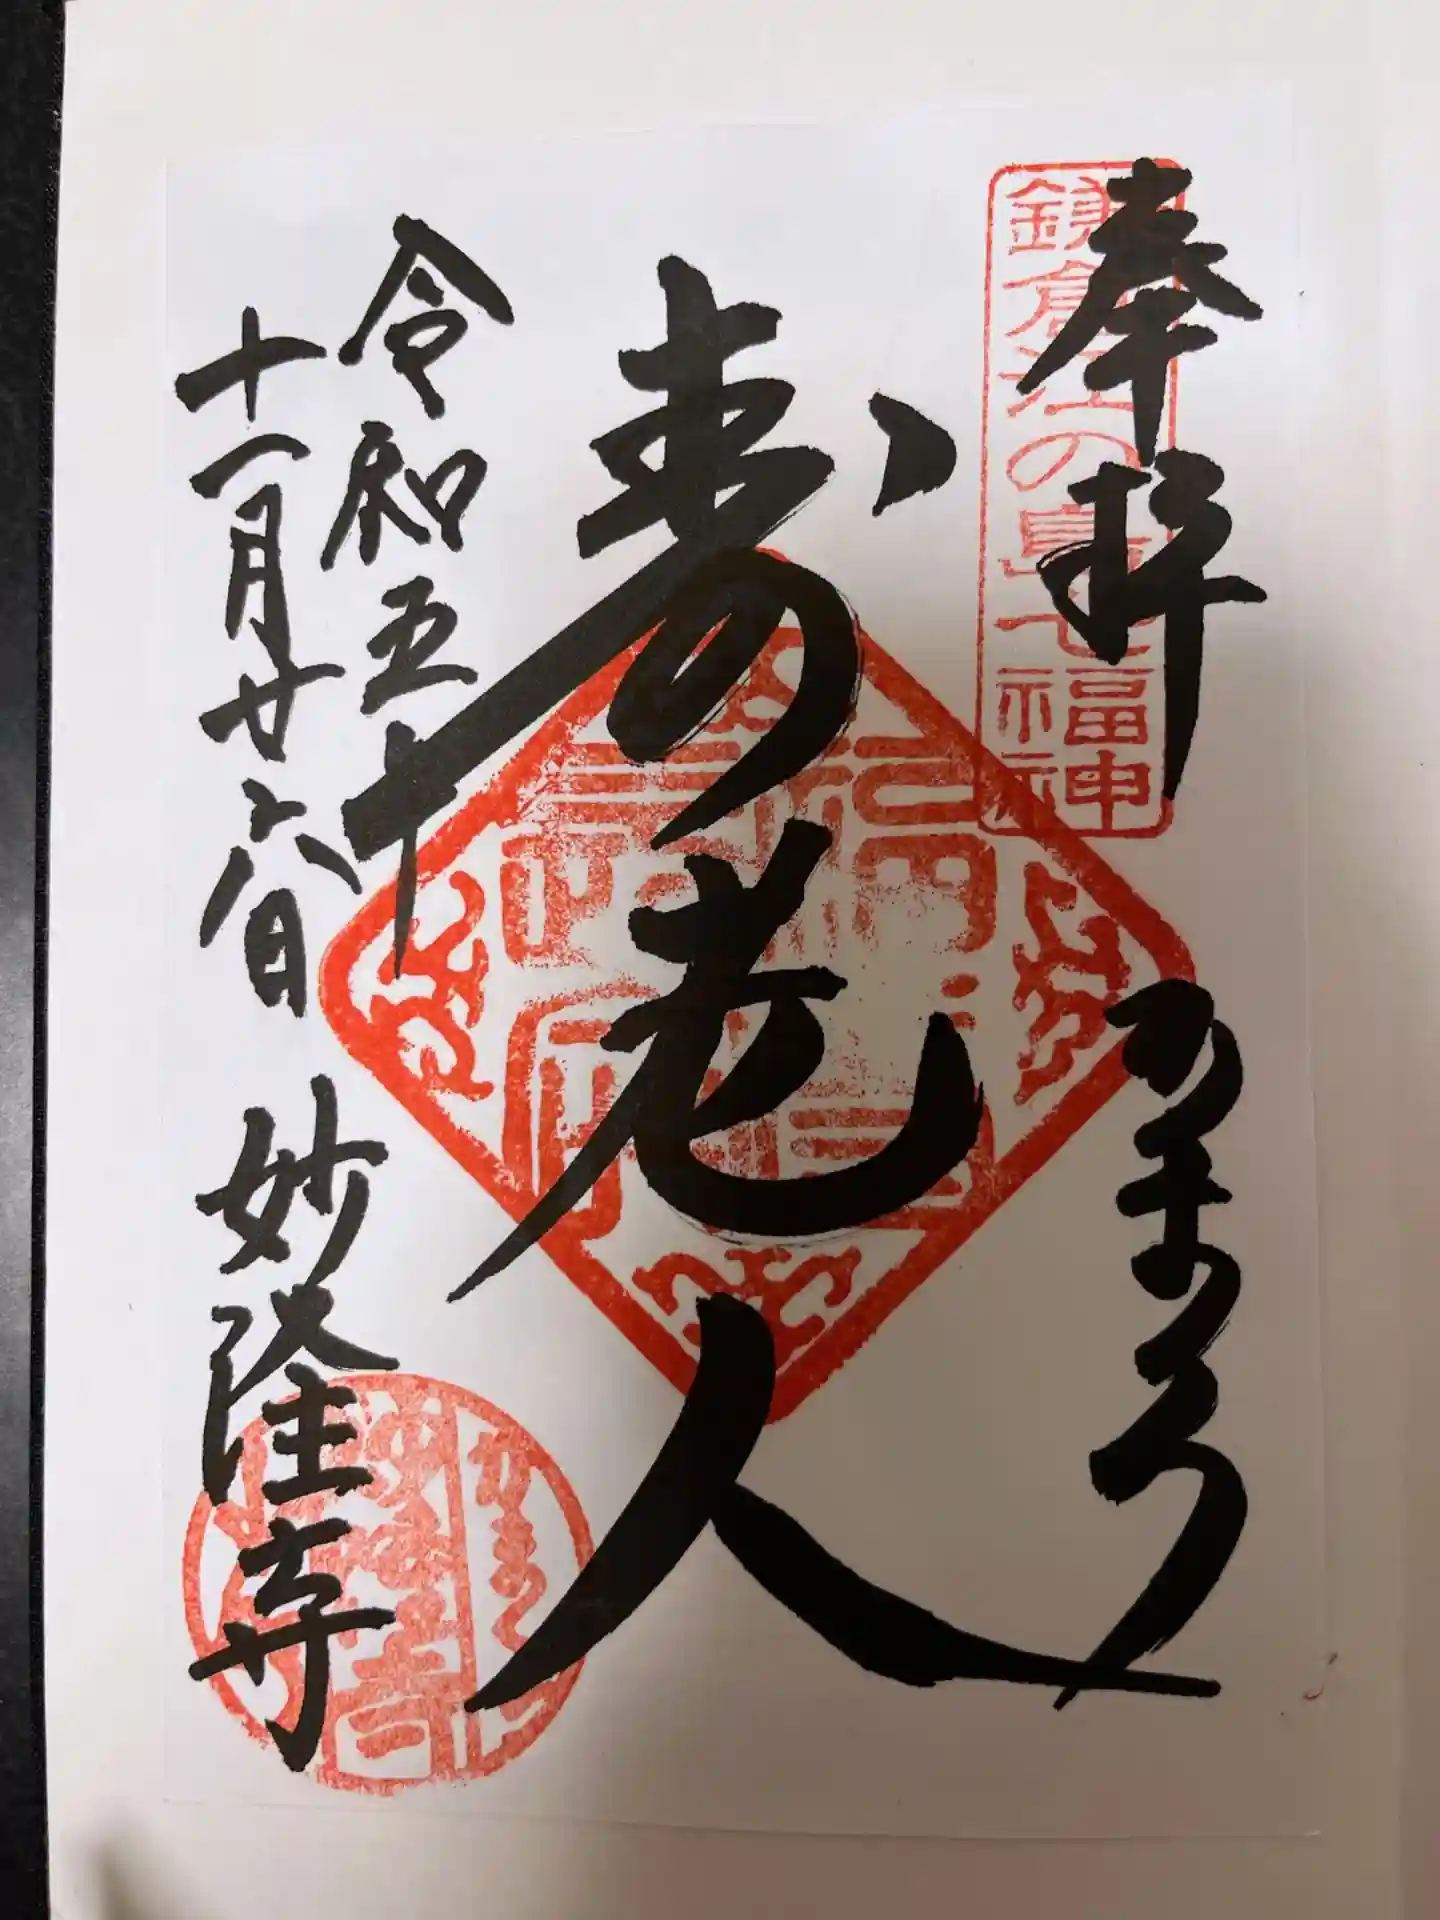 奉拝
鎌倉江の島七福神
かまくら
寿老人
令和五年
十一月廿六日
妙隆寺